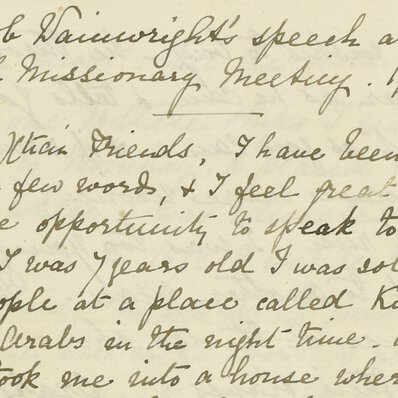 b Wainwright's speech a
Missionary Meeting.
Xtian Friends, I have been
few words, & I feel great
e opportunity to speak to
I was 7 years old I was sol
ople at a place called K
Arabs in the night time.
took me into a house wher